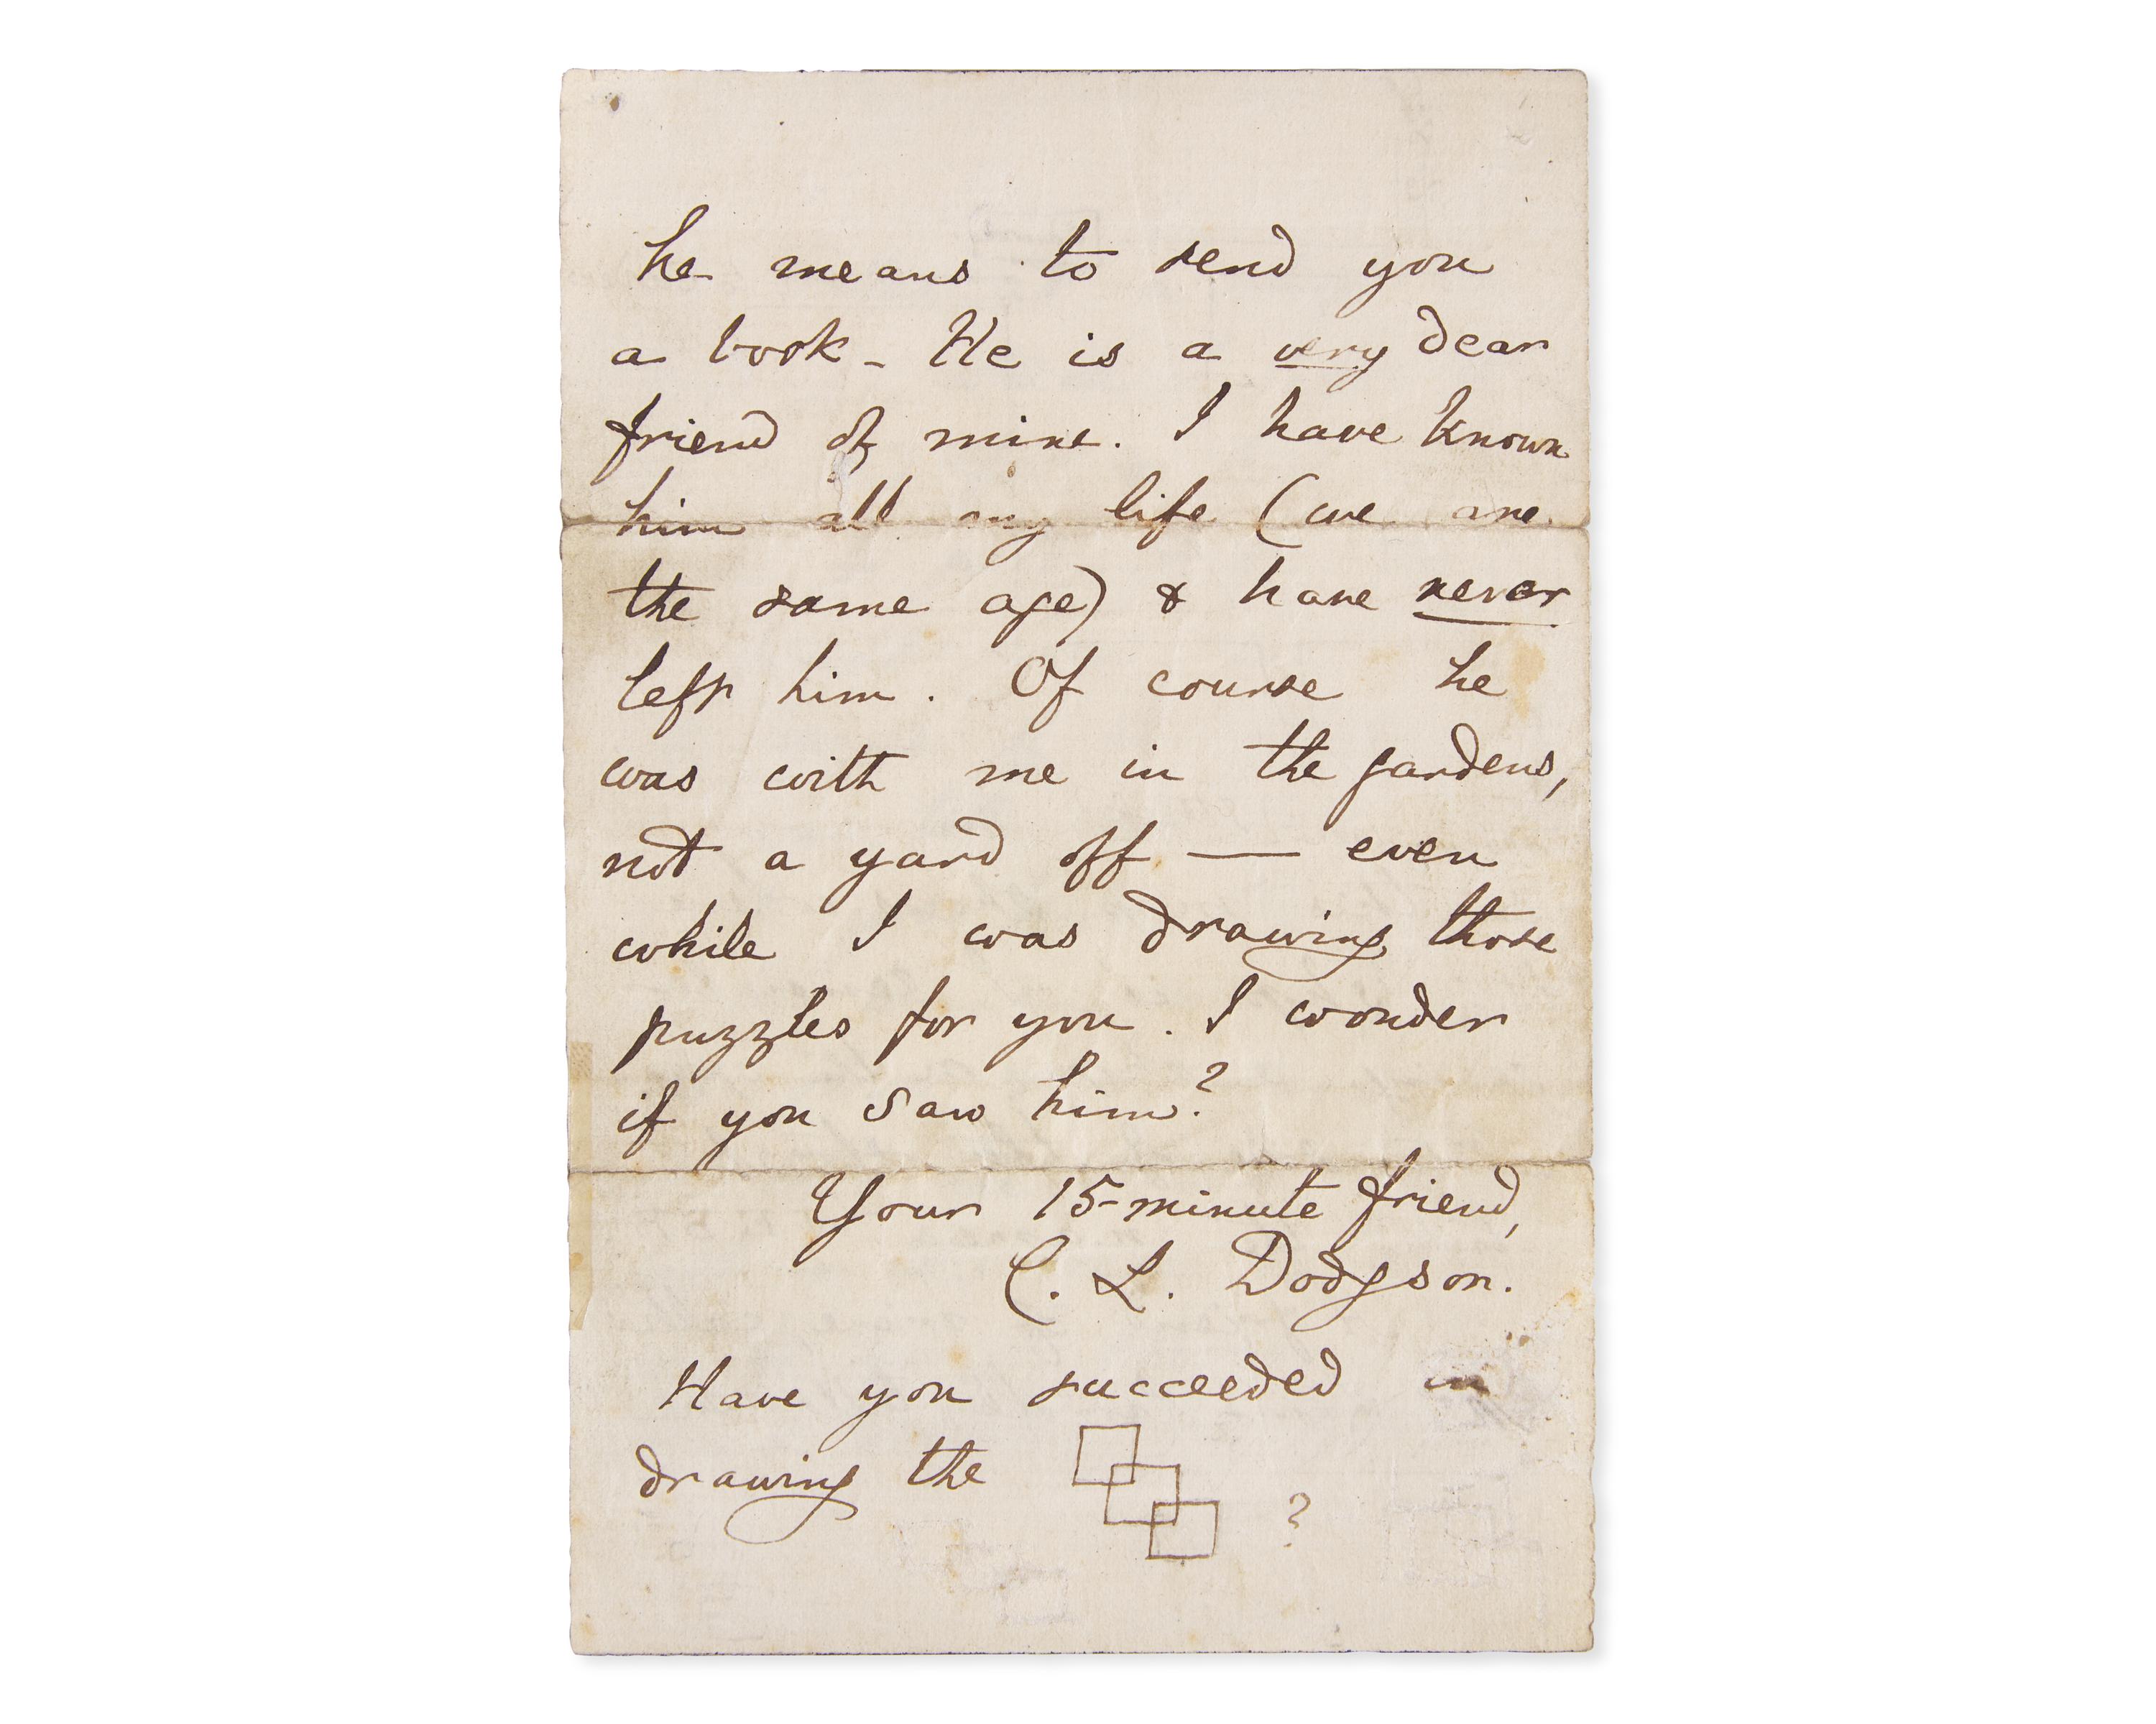 he means to send you
a book - He is a very dear
friend of mine. I have known
him all my life (we are
the same age) & have never
left him. Of course he
was with me in the gardens,
not a yard off — even
while I was drawing those
puzzles for you. I wonder
if you saw him?
Your 15-minute friend,
C. L. Dodgson.
Have you succeeded in
drawing the ?